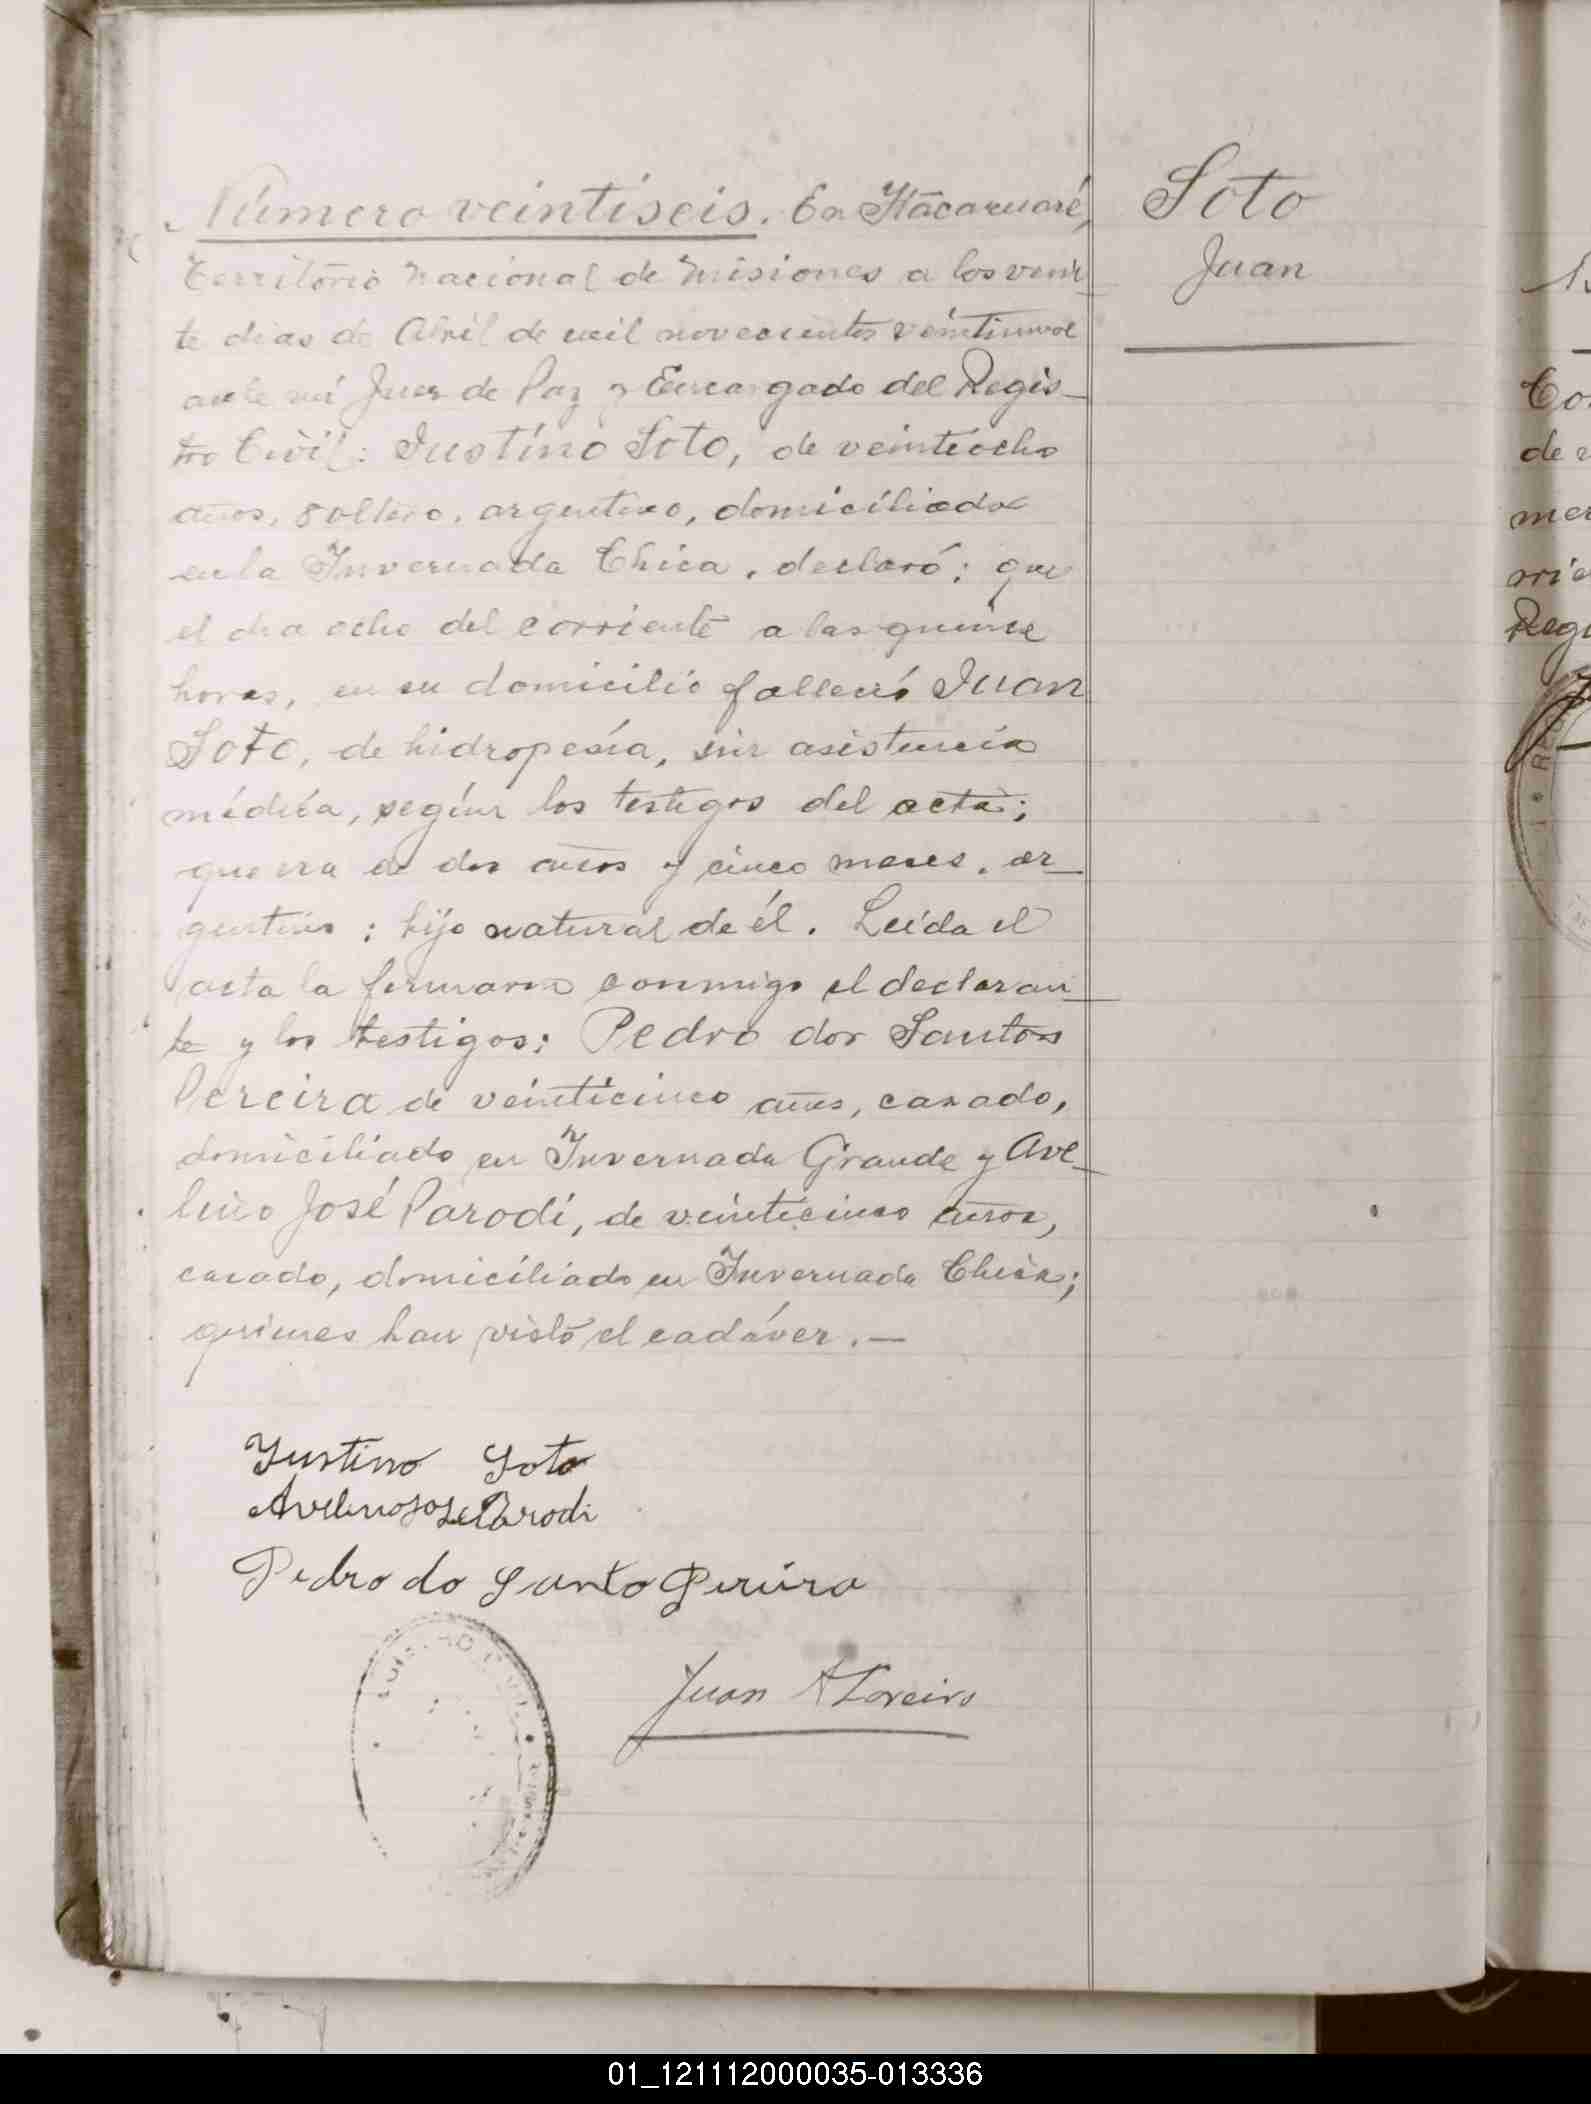 Número veintiseis. En Itacaruaré,
Territorio Nacional de Misiones a los vein-
te dias de Abril de mil novecientos veintinueve
ante mí Juez de Paz y Encargado del Regis-
tro Civil: Justino Soto, de veintiocho
años, soltero, argentino, domiciliado
en la Invernada Chica, declaró: que
el dia ocho del corriente a las quince
horas, en su domicilio falleció Juan
Soto, de hidropesía, sin asistencia
médica, según los testigos del acta;
que era de dos años y cinco meses, ar-
gentino; hijo natural de él. Leída el
acta la firmaron conmigo el declaran-
te y los testigos: Pedro dos Santos
Pereira de veinticinco años, casado,
domiciliado en Invernada Grande y Ave-
lino José Parodi, de veinticinco años,
casado, domiciliado en Invernada Chica;
quienes han visto el cadáver.—
Justino Soto
Avelino José Parodi
Pedro do Santo Pereira
Juan A Loreiro
Soto
Juan
de
Regi
01_121112000035-013336